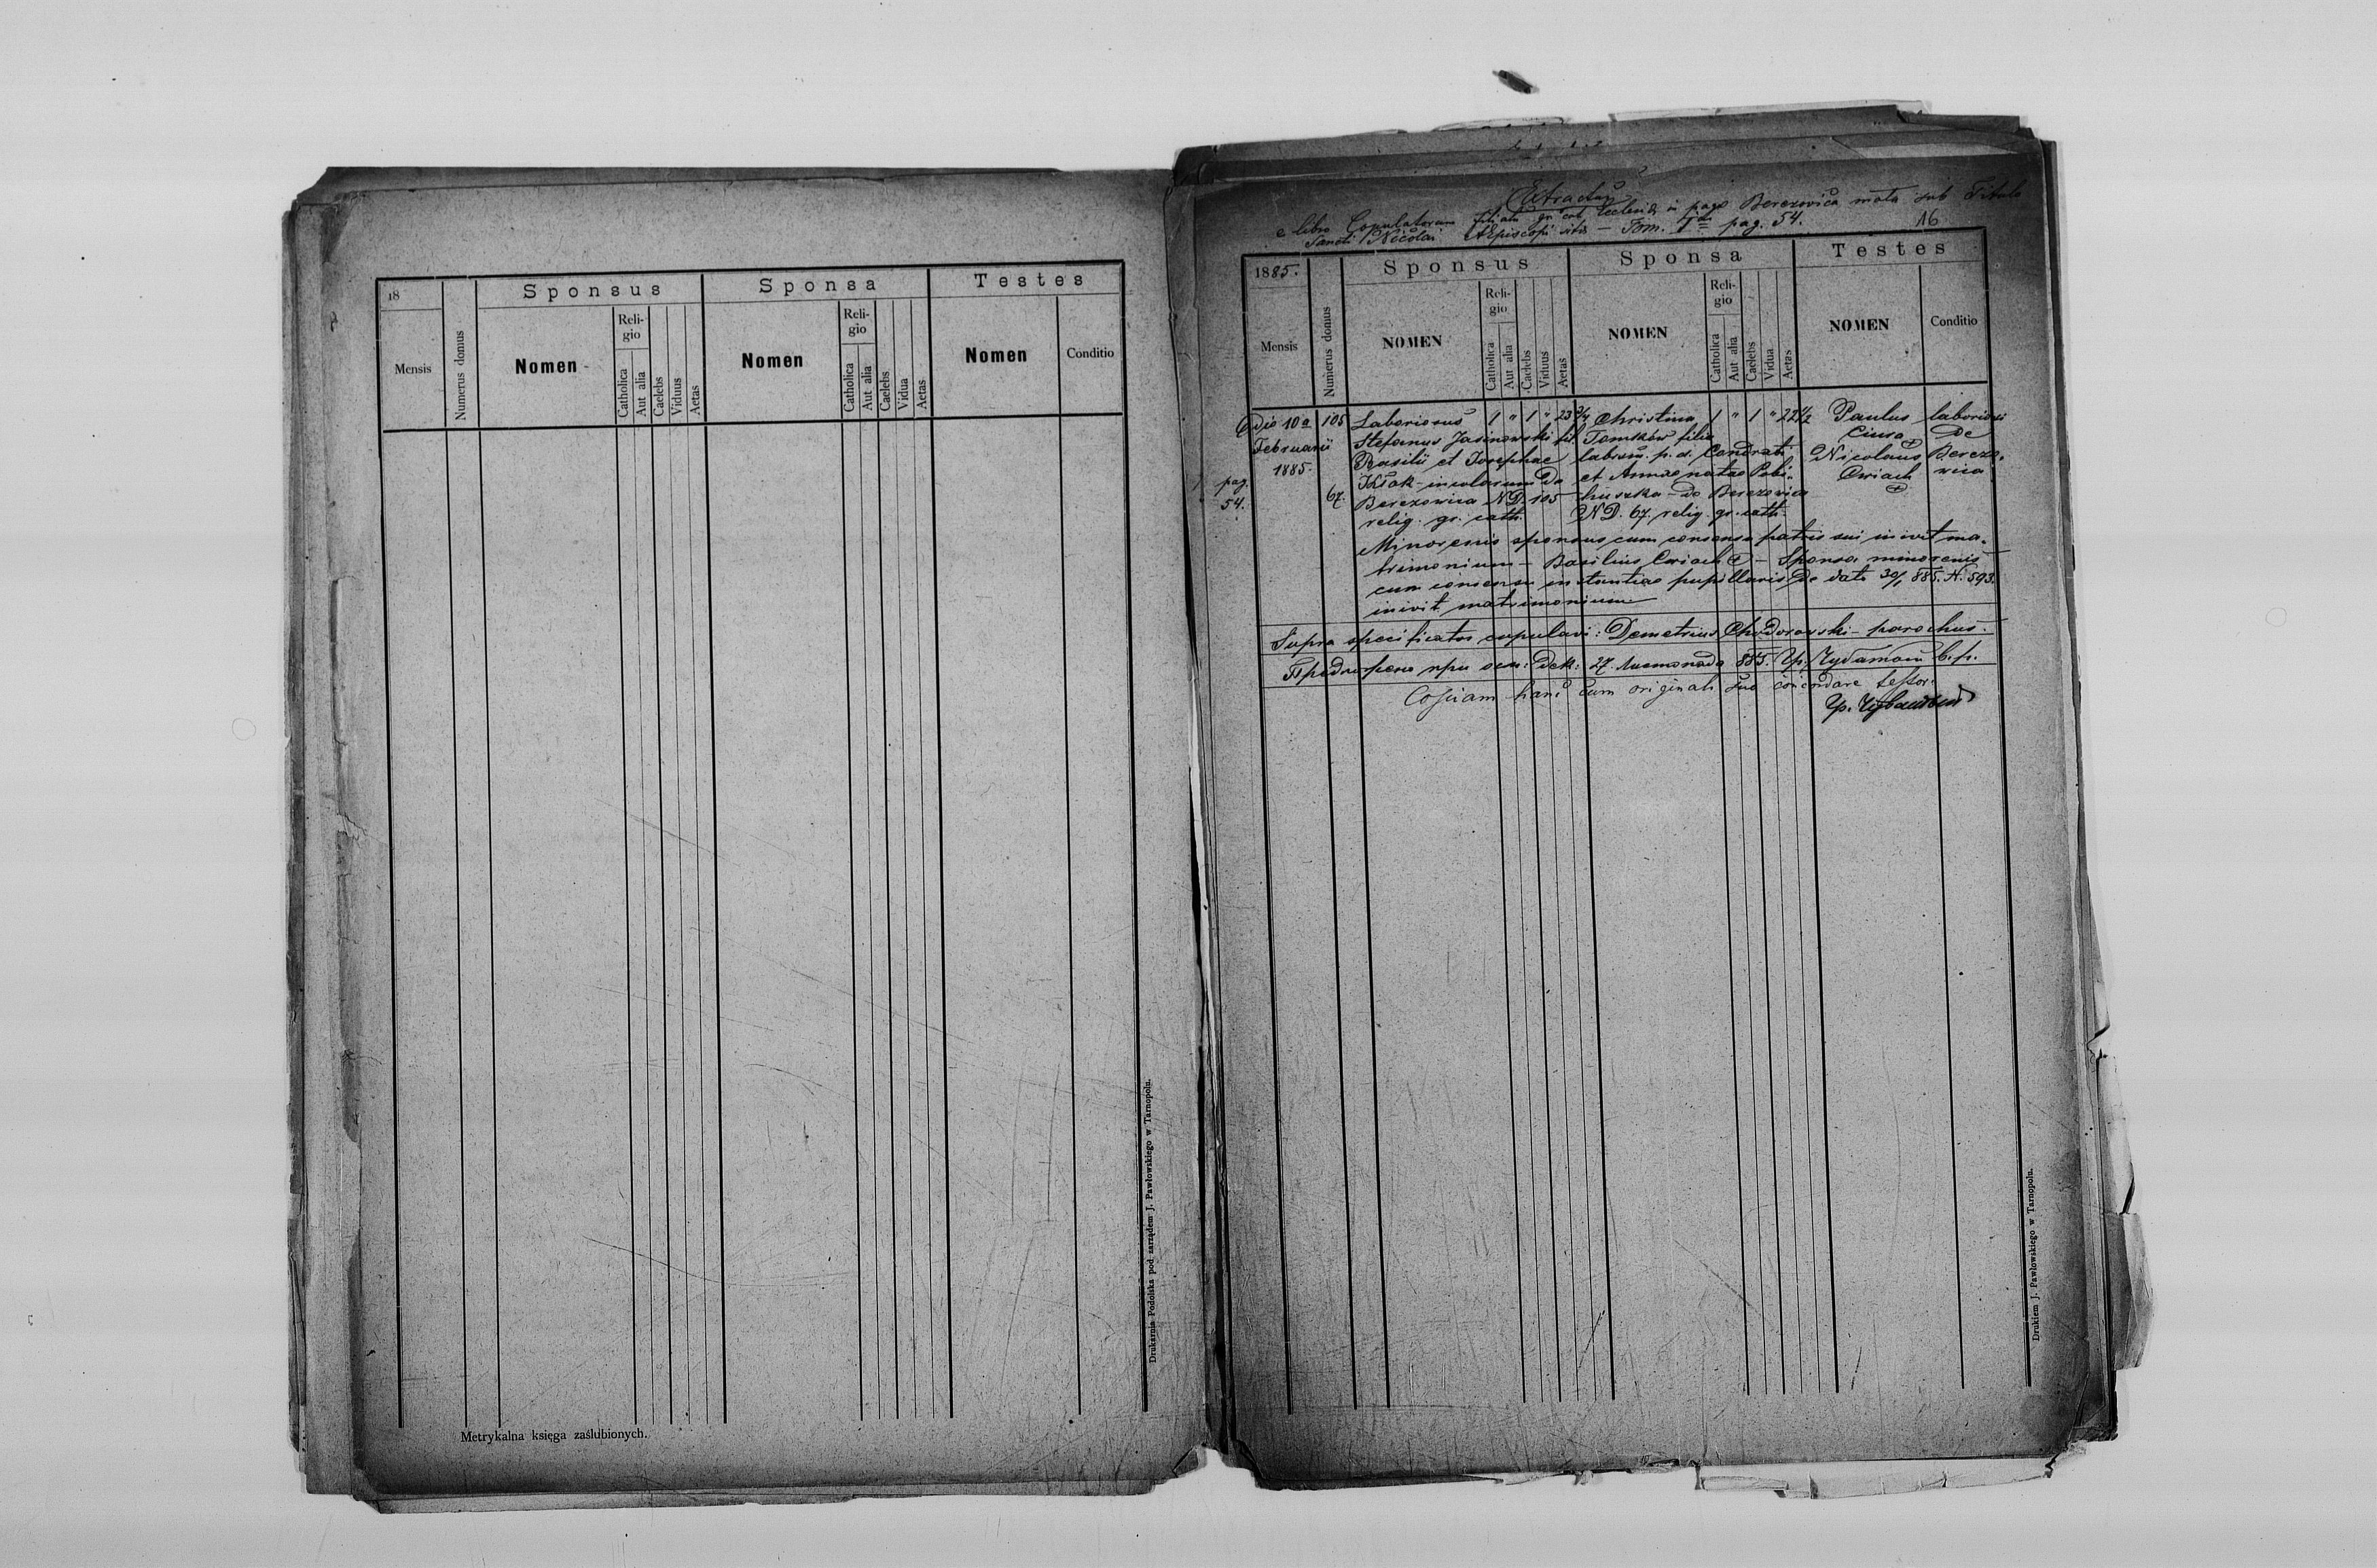 18
Sponsus
Sponsa
Testes
Mensis
Numerus domus
Nomen
Religio
Catholica
Aut alia
Caelebs
Viduus
Aetas
Nomen
Religio
Catholica
Aut alia
Caelebs
Vidua
Aetas
Nomen
Conditio
Drukarnia Podolska pod zarządem J. Pawłowskiego w Tarnopolu.
Metrykalna księga zaślubionych.
Extractus
e libro Copulatorum filialis gr. cat. Ecclesiae in pago Berezowica mala sub Titulo
Sancti Nicolai AEpiscopi sitis – Tom. I pag. 54.
16
1885.
Sponsus
Sponsa
Testes
Mensis
Numerus domus
NOMEN
Religio
Catholica
Aut alia
Caelebs
Viduus
Aetas
NOMEN
Religio
Catholica
Aut alia
Caelebs
Vidua
Aetas
NOMEN
Conditio
Die 10a
Februarii
1885.
pag.
54.
105
67.
Laboriosus
Stefanus Jasinowski fil.
Basilii et Josephae
Kłak – incolarum de
Berezowica ND. 105
relig. gr. cath.
1 " 1 " 23 3/4
Christina
Tomków filia
labrum. p. d. Condrati
et Annae natae Pobi-
huszka – de Berezowica
ND. 67. relig. gr. cath.
1 " 1 " 22 1/2
Paulus
Ciura +
Nicolaus
Cwiach
+
laboriosi
de
Berezo-
wica
Minorenis sponsus cum consensu patris sui inivit ma-
trimonium – Basilius Cwiach + – Sponsa minorenis
cum consensu instantiae pupillaris de dato 30/1 885. N. 593.
inivit matrimonium
Supra specificatos copulavi: Demetrius Chodorowski – parochus.
при дек: 27. Листопада 885.
Copiam hanc cum originali suo concordare testor: